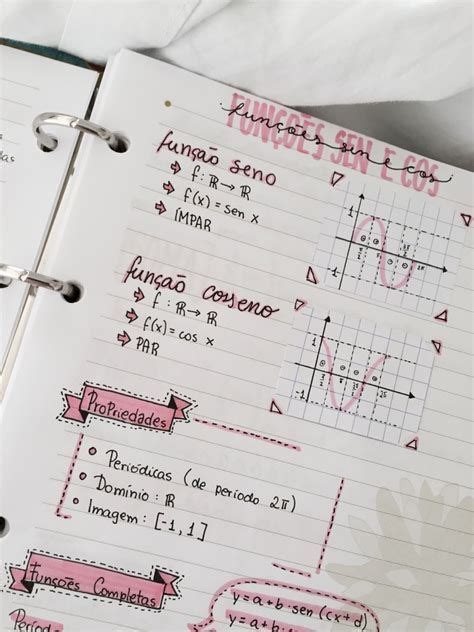 FUNÇÕES SEN E COS
funções sen e cos
função seno
f: ℝ → ℝ
f(x) = sen x
ÍMPAR
1
-1
função cosseno
f: ℝ → ℝ
f(x) = cos x
PAR
1
-1
Propriedades
Periódicas (de período 2π)
Domínio: ℝ
Imagem: [-1, 1]
Funções Completas
y = a + b · sen (cx + d)
y = a + b · cos